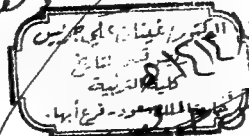 الدكتور / غيثان بن علي بن جريس
قسم التاريخ
كلية التربية
جامعة الملك سعود - فرع أبها